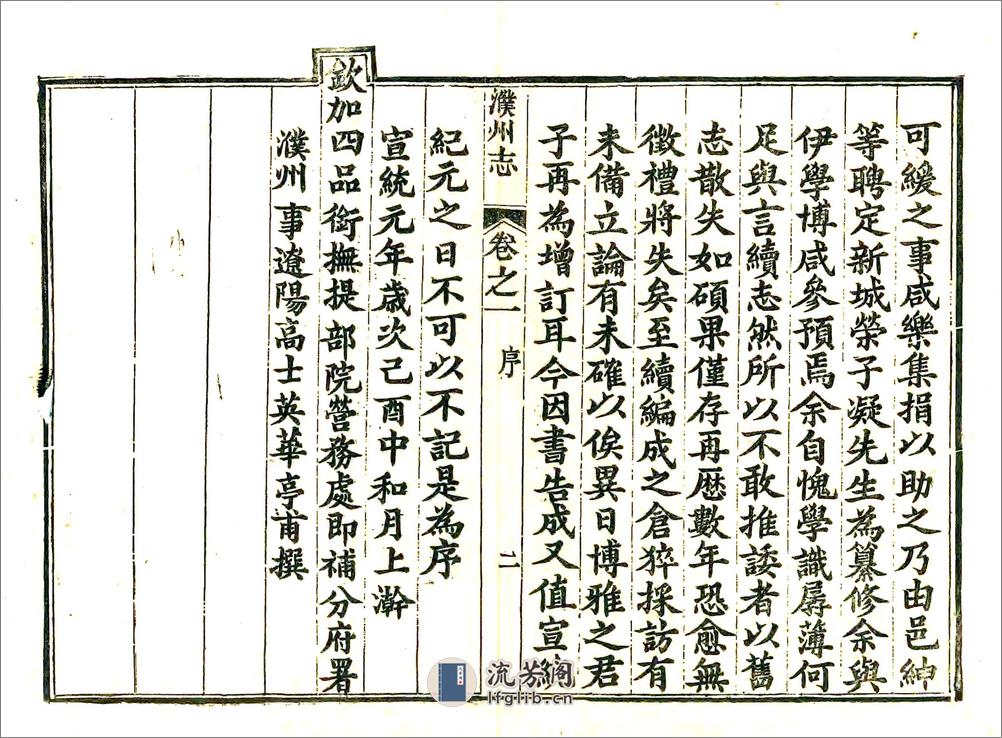 可緩之事咸樂集捐以助之乃由邑紳
等聘定新城榮子凝先生為纂修余與
伊學博咸參預焉余自愧學識孱薄何
足與言續志然所以不敢推諉者以舊
志散失如碩果僅存再歷數年恐愈無
徵禮將失矣至續編成之倉猝採訪有
未備立論有未確以俟異日博雅之君
子再為增訂耳今因書告成又值宣統
濮州志
卷之一
序
二
紀元之日不可以不記是為序
宣統元年歲次己酉中和月上澣
欽加四品銜撫提部院營務處即補分府署
濮州事遼陽高士英華亭甫撰
流芳阁
lfglib.cn